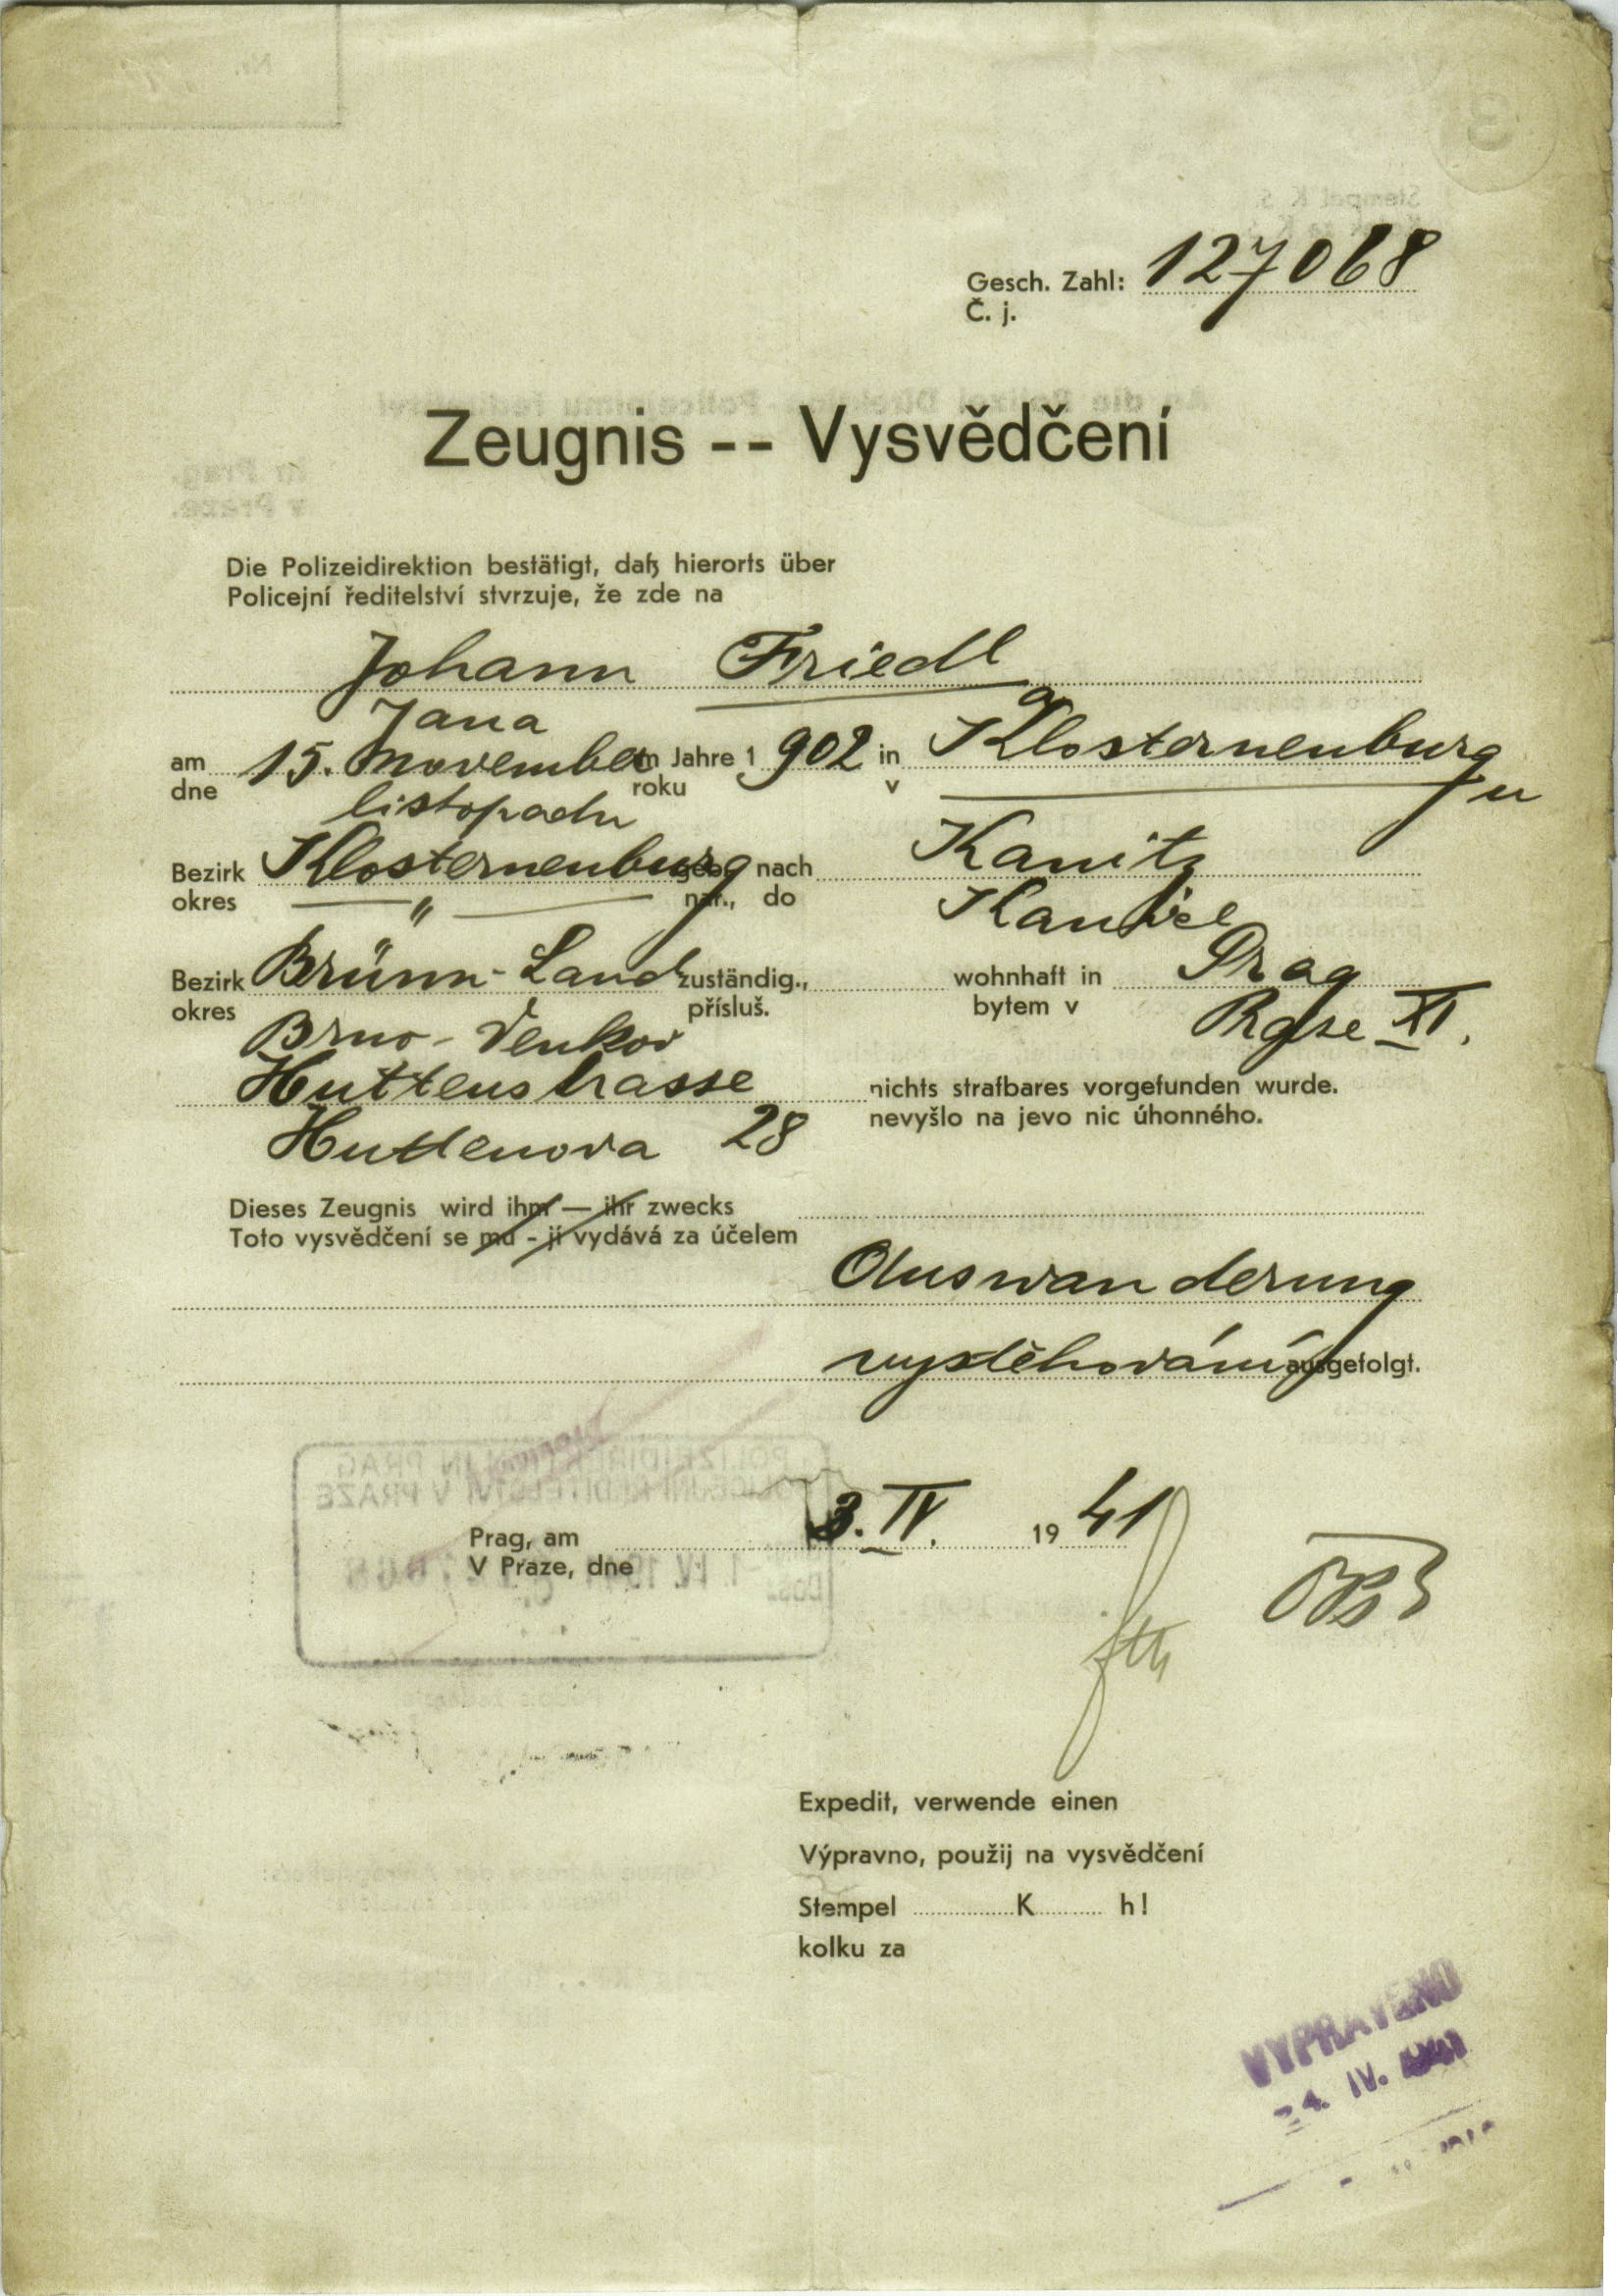 Gesch. Zahl: 127068
Č. j.
Zeugnis -- Vysvědčení
Die Polizeidirektion bestätigt, daß hierorts über
Policejní ředitelství stvrzuje, že zde na
Johann Friedl
Jana
am 15. November im Jahre 1 902 in Klosterneuburg
dne listopadu roku v u
Bezirk Klosterneuburg geb., nach Kanitz
okres — " — nar., do Kanice
Bezirk Brünn-Land zuständig., wohnhaft in Prag
okres Brno-Venkov přísluš. bytem v XI.
Huttenstrasse nichts strafbares vorgefunden wurde.
nevyšlo na jevo nic úhonného.
Huttenova 28
Dieses Zeugnis wird ihm — ihr zwecks
Toto vysvědčení se mu - jí vydává za účelem
Auswanderung
vystěhování ausgefolgt.
Prag, am 3. IV. 19 41
V Praze, dne
Expedit, verwende einen
Výpravno, použij na vysvědčení
Stempel K h!
kolku za
VYPRAVENO
24. IV. 1941